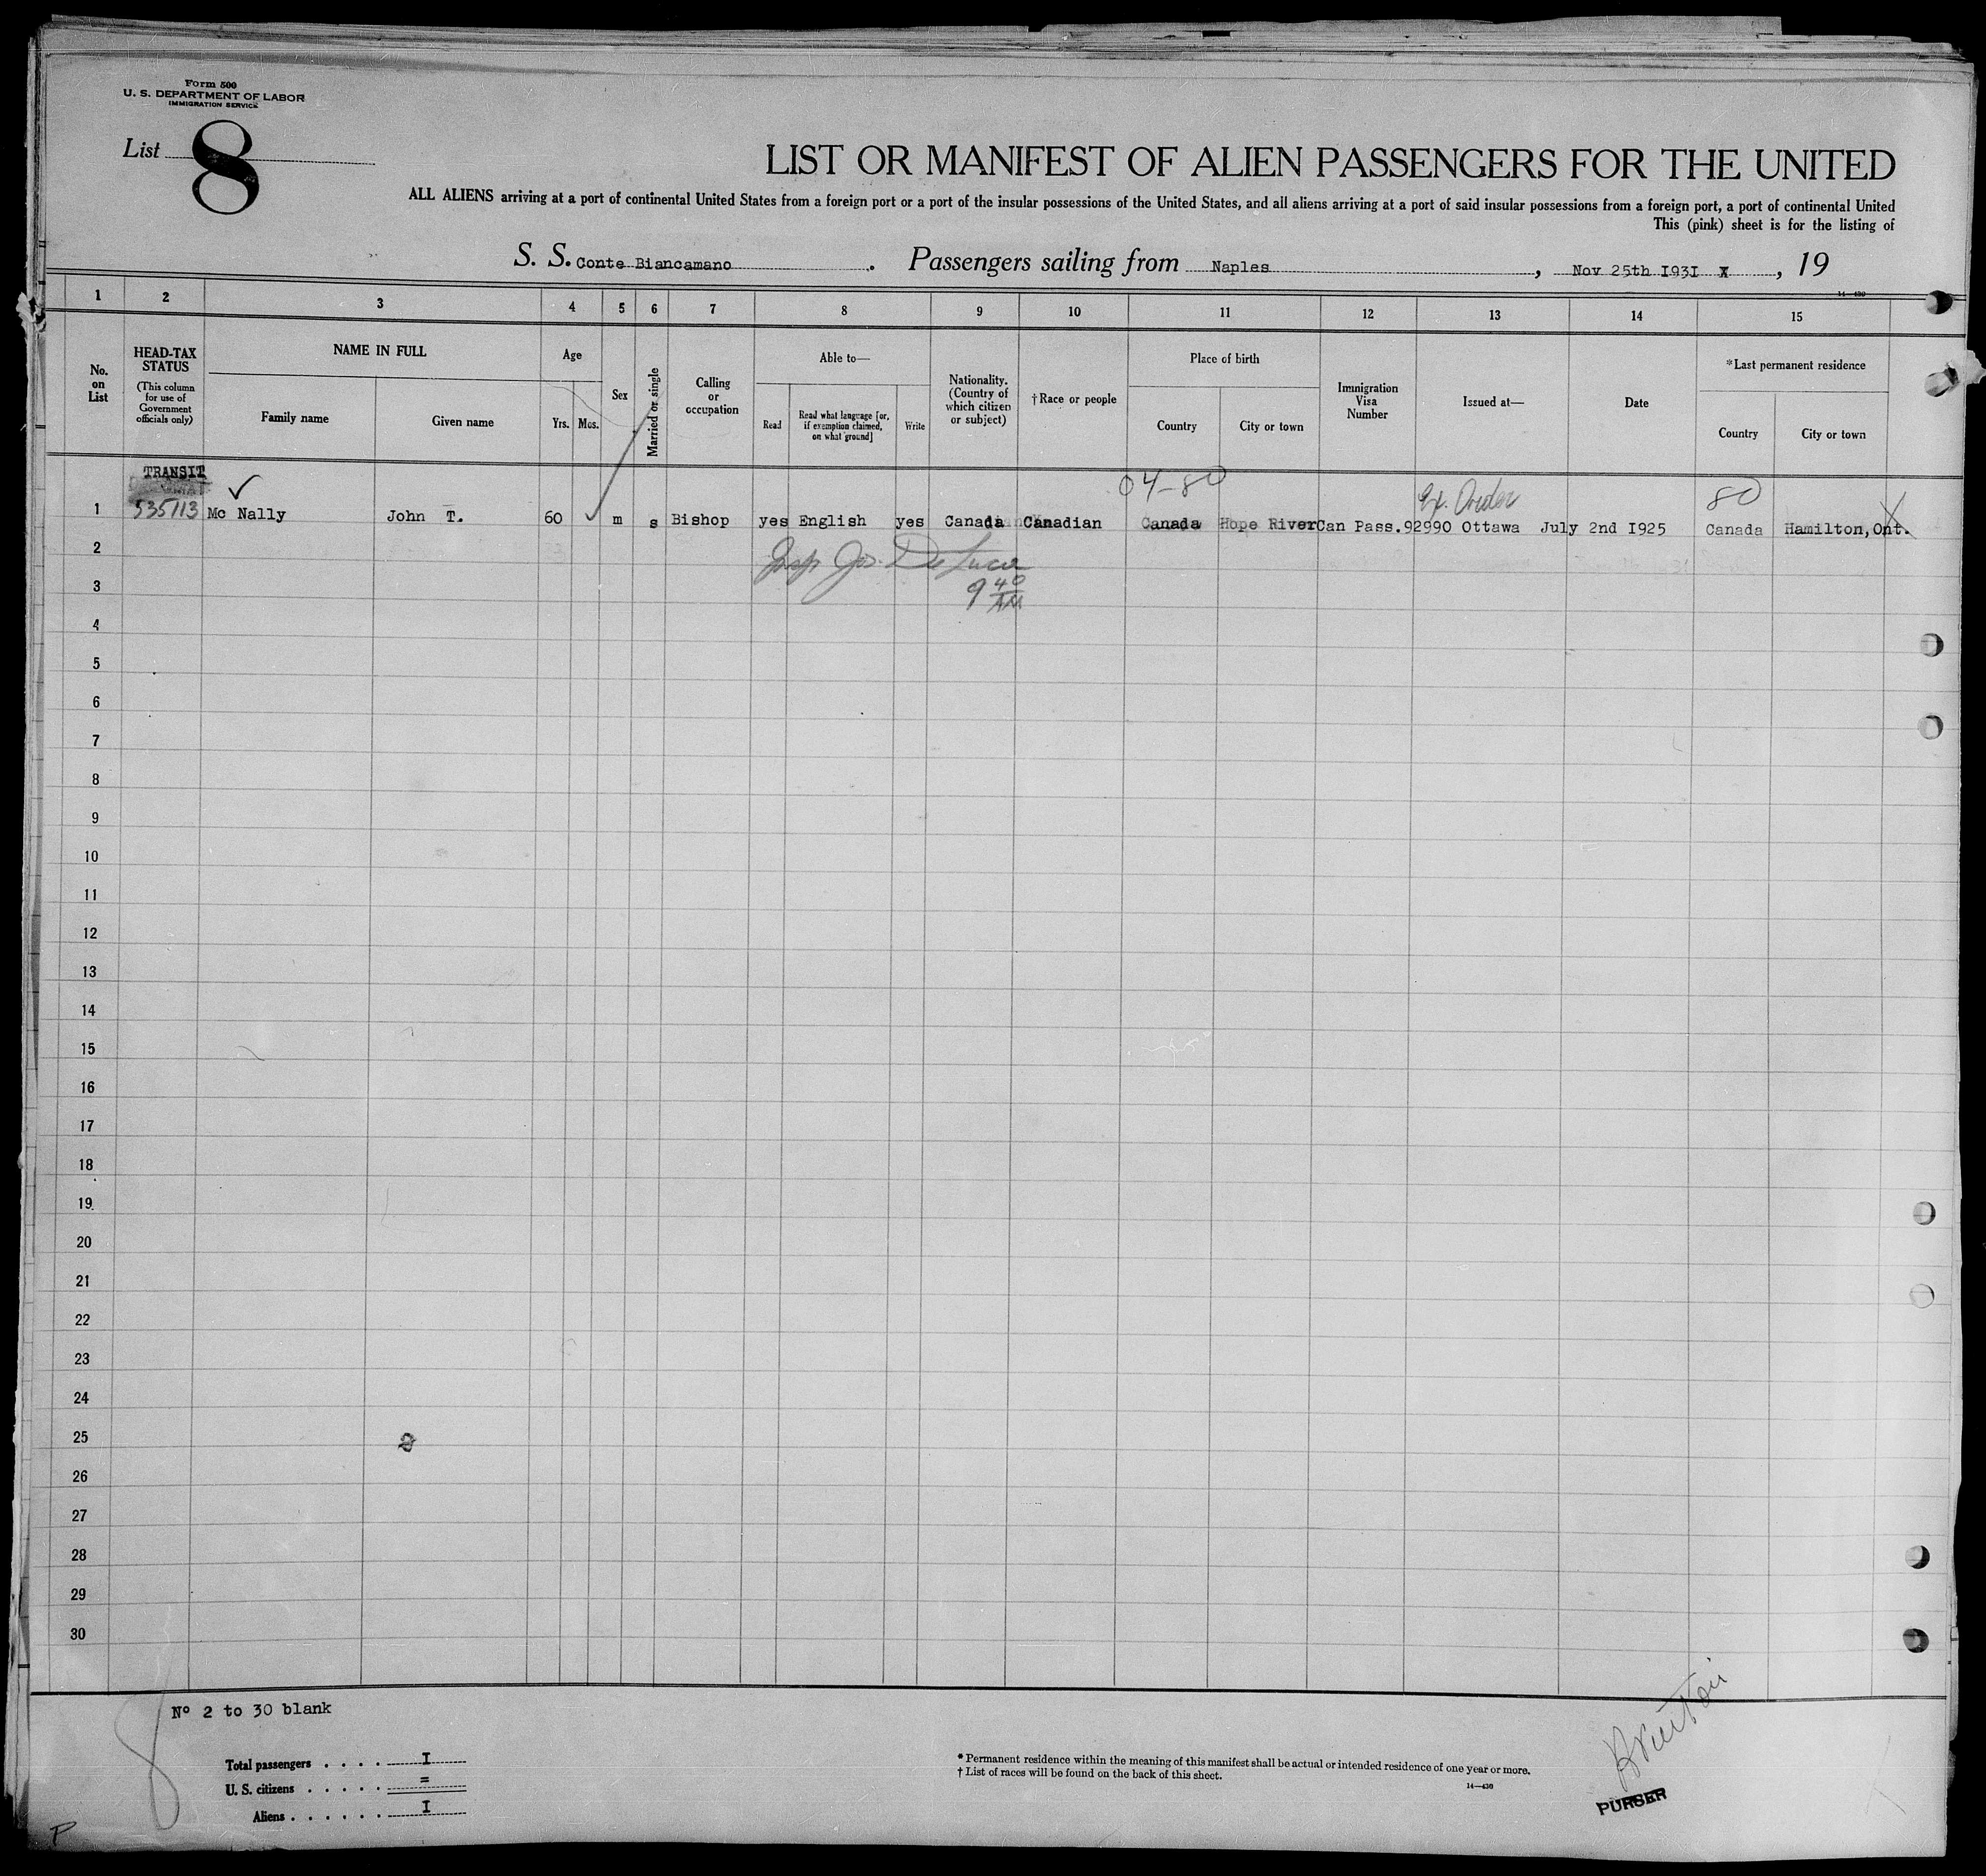 Form 500
U. S. DEPARTMENT OF LABOR
IMMIGRATION SERVICE
List 8
LIST OR MANIFEST OF ALIEN PASSENGERS FOR THE UNITED
ALL ALIENS arriving at a port of continental United States from a foreign port or a port of the insular possessions of the United States, and all aliens arriving at a port of said insular possessions from a foreign port, a port of continental United
This (pink) sheet is for the listing of
S. S. Conte Biancamano . Passengers sailing from Naples , Nov 25th I93I X , 19
14—430
1 2 3 4 5 6 7 8 9 10 11 12 13 14 15
No. on List
HEAD-TAX STATUS
(This column for use of Government officials only)
NAME IN FULL
Family name
Given name
Age
Yrs. Mos.
Sex
Married or single
Calling or occupation
Able to—
Read
Read what language [or, if exemption claimed, on what ground]
Write
Nationality. (Country of which citizen or subject)
†Race or people
Place of birth
Country
City or town
Immigration Visa Number
Issued at—
Date
*Last permanent residence
Country
City or town
TRANSIT
04-80
80
1 535113 Mc Nally John T. 60 m s Bishop yes English yes Canada Canadian Canada Hope River Can Pass.92990 Ottawa July 2nd I925 Canada Hamilton, Ont.
2
Insp Jos. De Luca
3
9 40 AM
4
5
6
7
8
9
10
11
12
13
14
15
16
17
18
19
20
21
22
23
24
25
26
27
28
29
30
Nº 2 to 30 blank
Total passengers . . . . I
U. S. citizens . . . . . =
Aliens . . . . . . I
* Permanent residence within the meaning of this manifest shall be actual or intended residence of one year or more.
† List of races will be found on the back of this sheet.
14—430
PURSER
P